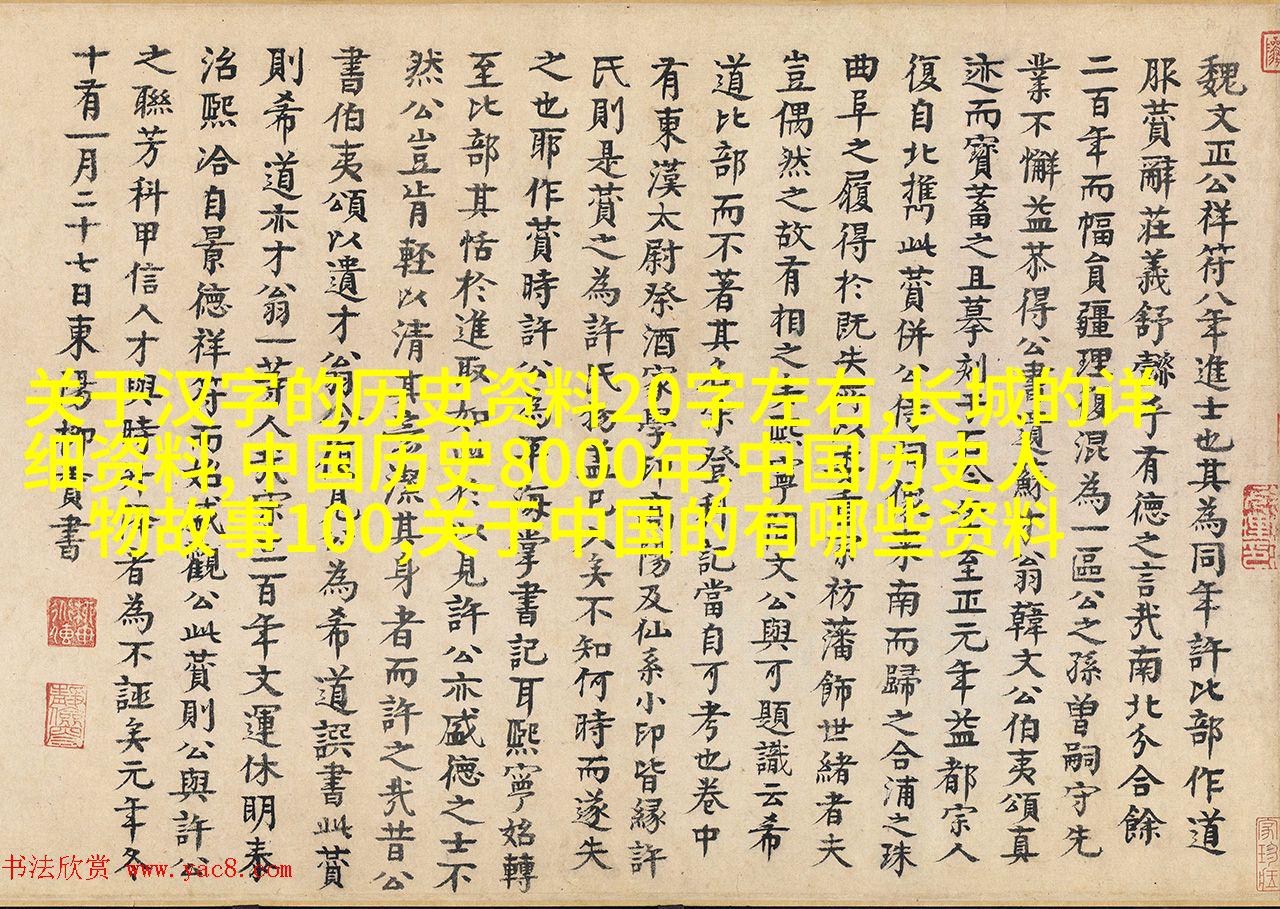 魏文正公祥符八年進士也其為同年許比部作道
服贊辭莊義舒子有德之言我南北分合餘
二百年而幅員疆理復混為一區公之孫曾嗣守先
業不懈益恭得公書遺蘇才翁韓文公伯夷頌真
迹而寶蓄之且摹刻于石今至正元年益都宗人
復自北攜此贊併公示南而歸之合浦之珠
曲阜之履得於既失所以祊藩飾世緒者夫
豈偶然之故有相之熙寧間文公與可題識云希
道比部而不著其名登科記當自可考也卷中
有東漢太尉祭酒家學印高陽及仙系小印皆緣許
氏則是贊之為許氏蓋已久矣不知何時而遂失
之也耶作贊時許公為平海掌書記耳熙寧始轉
至比部其恬於進取如此於以見許公亦盛德之士不
然公豈肯輕以清其言潔其身者而許之哉昔公
書伯夷頌以遺才翁今復見為希道譔書此贊
則希道亦才翁一等人宋二百年文運休明泰
治熙洽自景德祥符而始盛觀公此贊則公與許公
之聯芳科甲信人才與時者為不誣矣元年冬
十有一月二十七日東陽柳貫書
关于汉字的历史资料20字左右,长城的详
细资料,中国历史8000年,中国历史人
物故事100,关于中国的有哪些资料
书法欣赏 www.yac8.com